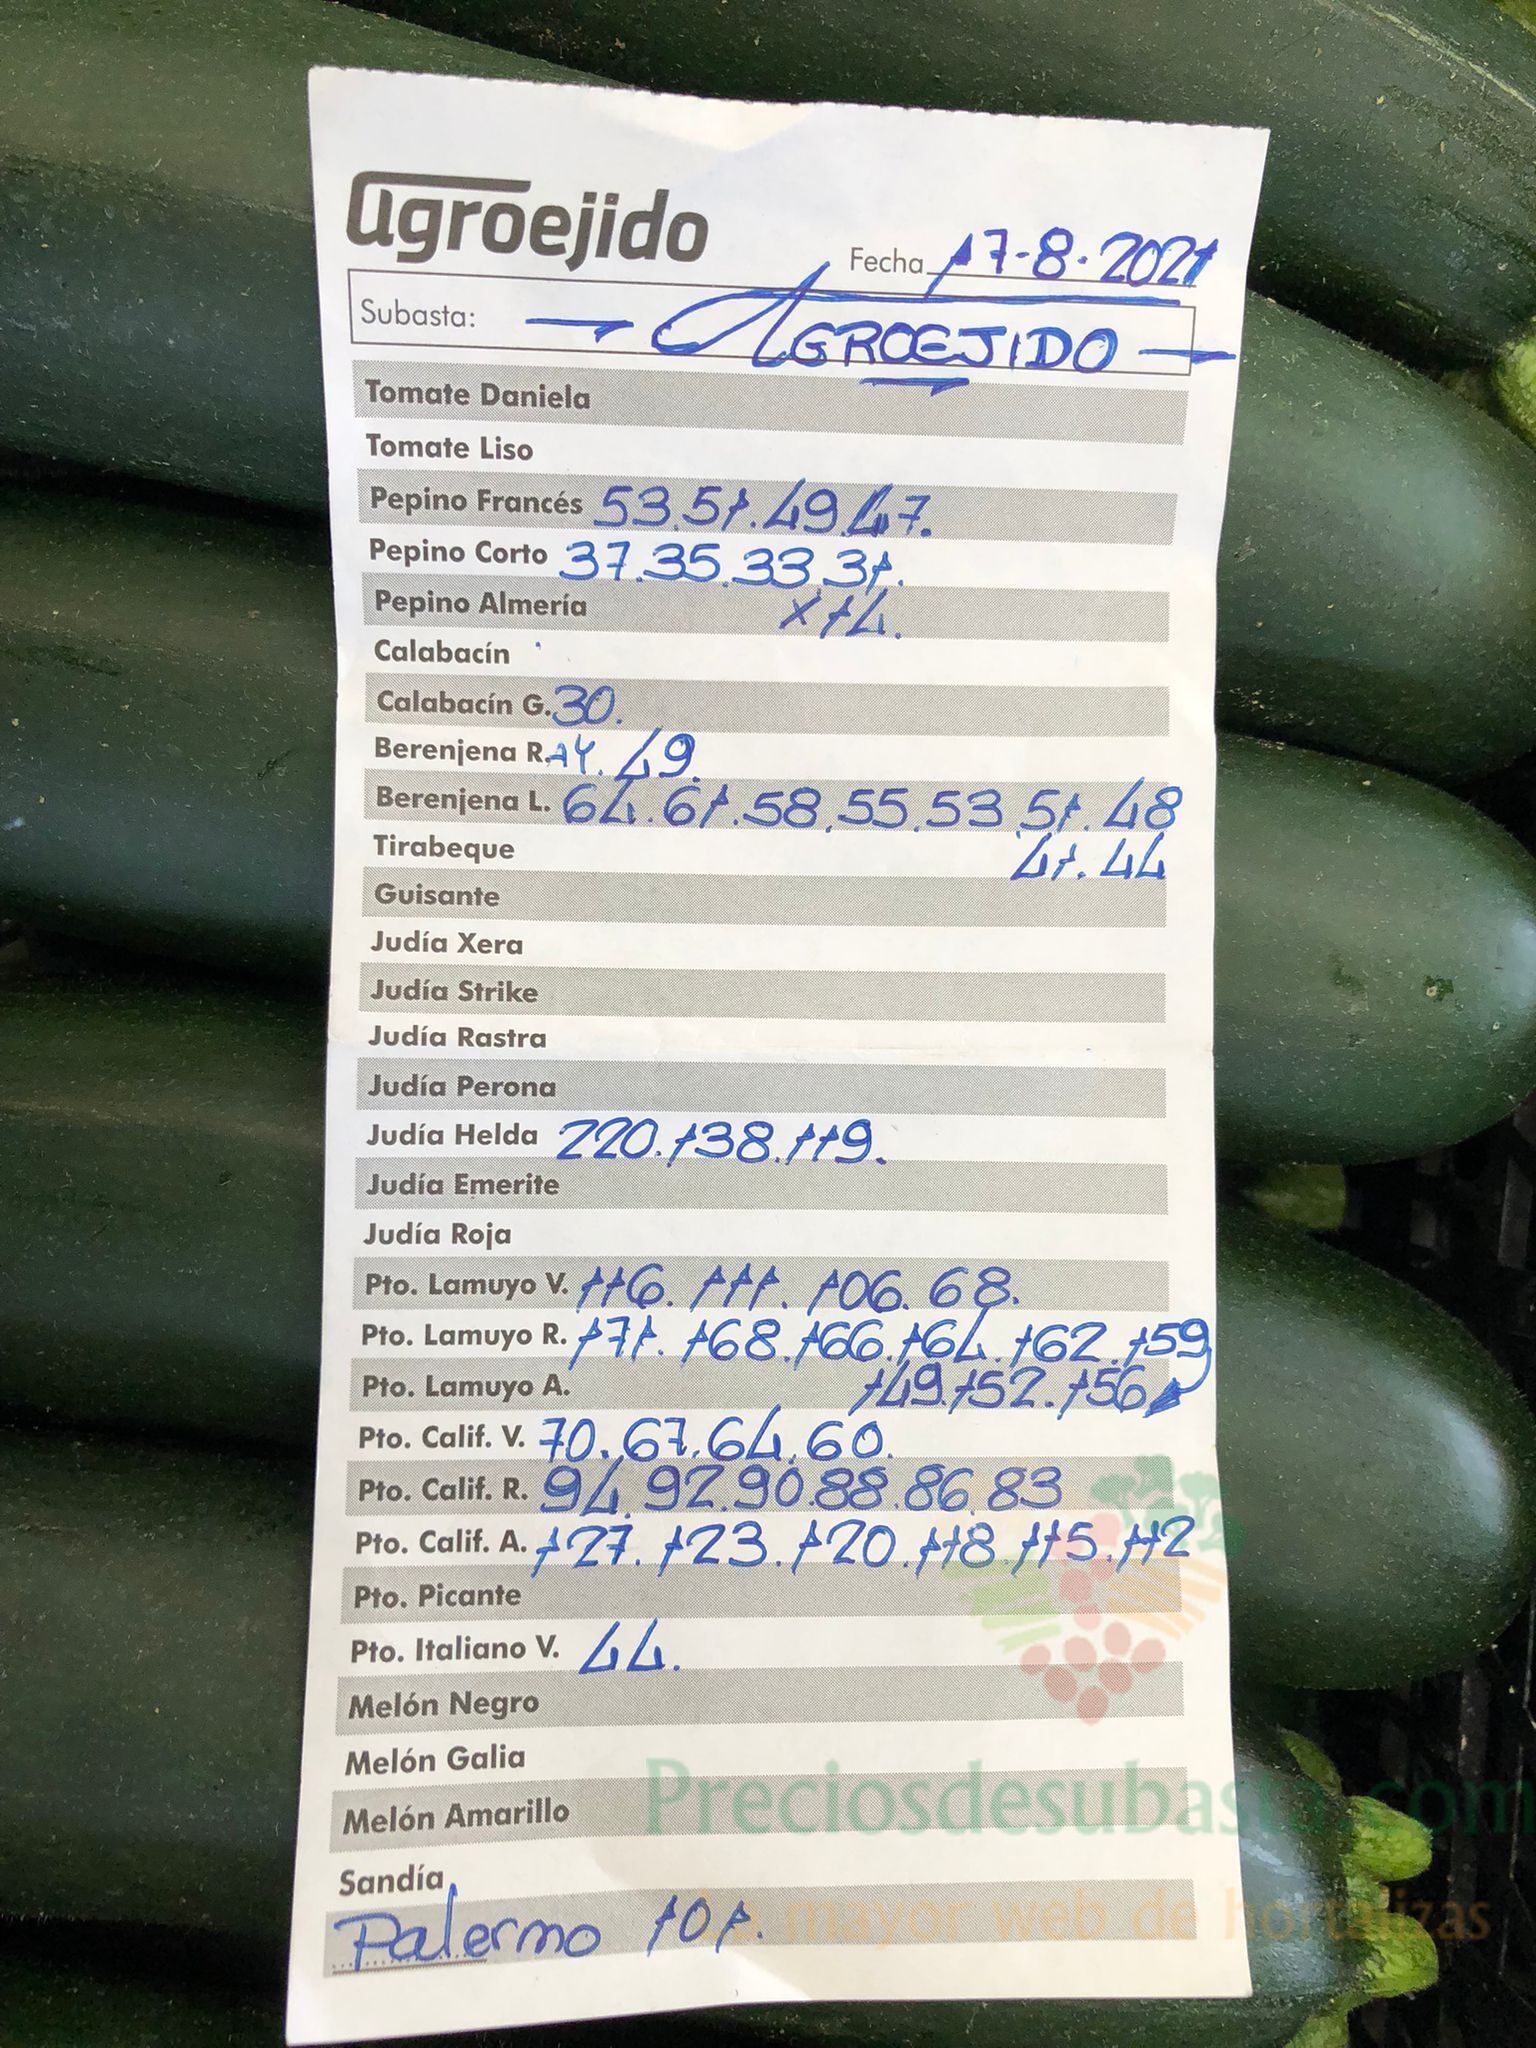 agroejido
Fecha 17-8-2021
Subasta: — AGROEJIDO —
Tomate Daniela
Tomate Liso
Pepino Francés 53.51.49.47.
Pepino Corto 37.35.33.31.
Pepino Almería x14.
Calabacín
Calabacín G. 30.
Berenjena R. 49.
Berenjena L. 64.61.58.55.53.51.48
Tirabeque 47.44
Guisante
Judía Xera
Judía Strike
Judía Rastra
Judía Perona
Judía Helda 220.138.119.
Judía Emerite
Judía Roja
Pto. Lamuyo V. 116.111.106.68.
Pto. Lamuyo R. 171.168.166.164.162.159
Pto. Lamuyo A. 149.152.156
Pto. Calif. V. 70.67.64.60.
Pto. Calif. R. 94.92.90.88.86.83
Pto. Calif. A. 127.123.120.118.115.112
Pto. Picante
Pto. Italiano V. 44.
Melón Negro
Melón Galia
Melón Amarillo
Preciosdesubasta.com
Sandía
Palermo 101.
La mayor web de hortalizas